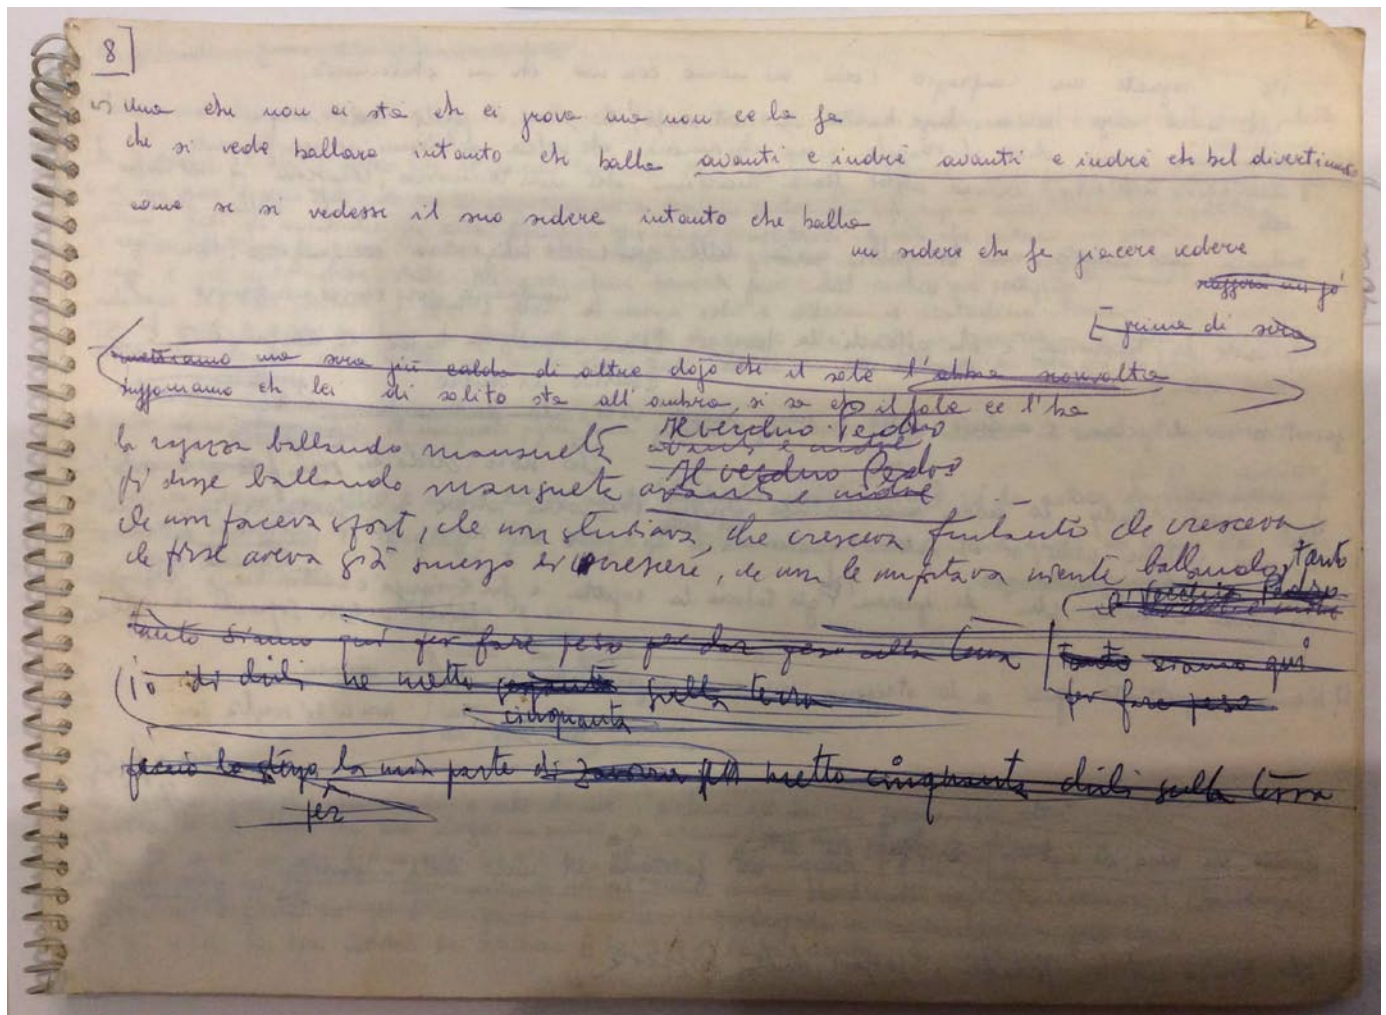 8
una che non ci sta che ci prova ma non ce la fa
che si vede ballare intanto che balla avanti e indrè avanti e indrè che bel divertimento
come se si vedesse il suo sedere intanto che balla
un sedere che fa piacere vedere
E prima di sera
mettiamo una sera più calda di altre dopo che il sole l'abbia sconvolta
supponiamo che lei di solito sta all'ombra, si sa che il sole ce l'ha
la ragazza ballando mansueta avanti e indrè
Il vecchio Pedro
si disse ballando mansueta avanti e indrè
Il vecchio Pedro
che non faceva sport, che non studiava, che cresceva fintanto che cresceva
che forse aveva già smesso di crescere, che non le importava niente ballando, tanto
il Vecchio Pedro
tanto siamo qui per fare peso per dar peso alla terra
tanto siamo qui
io di chili ne metto sulla terra
per fare peso
cinquanta
faccio lo sforzo, la mia parte di zavorra metto cinquanta chili sulla terra
per